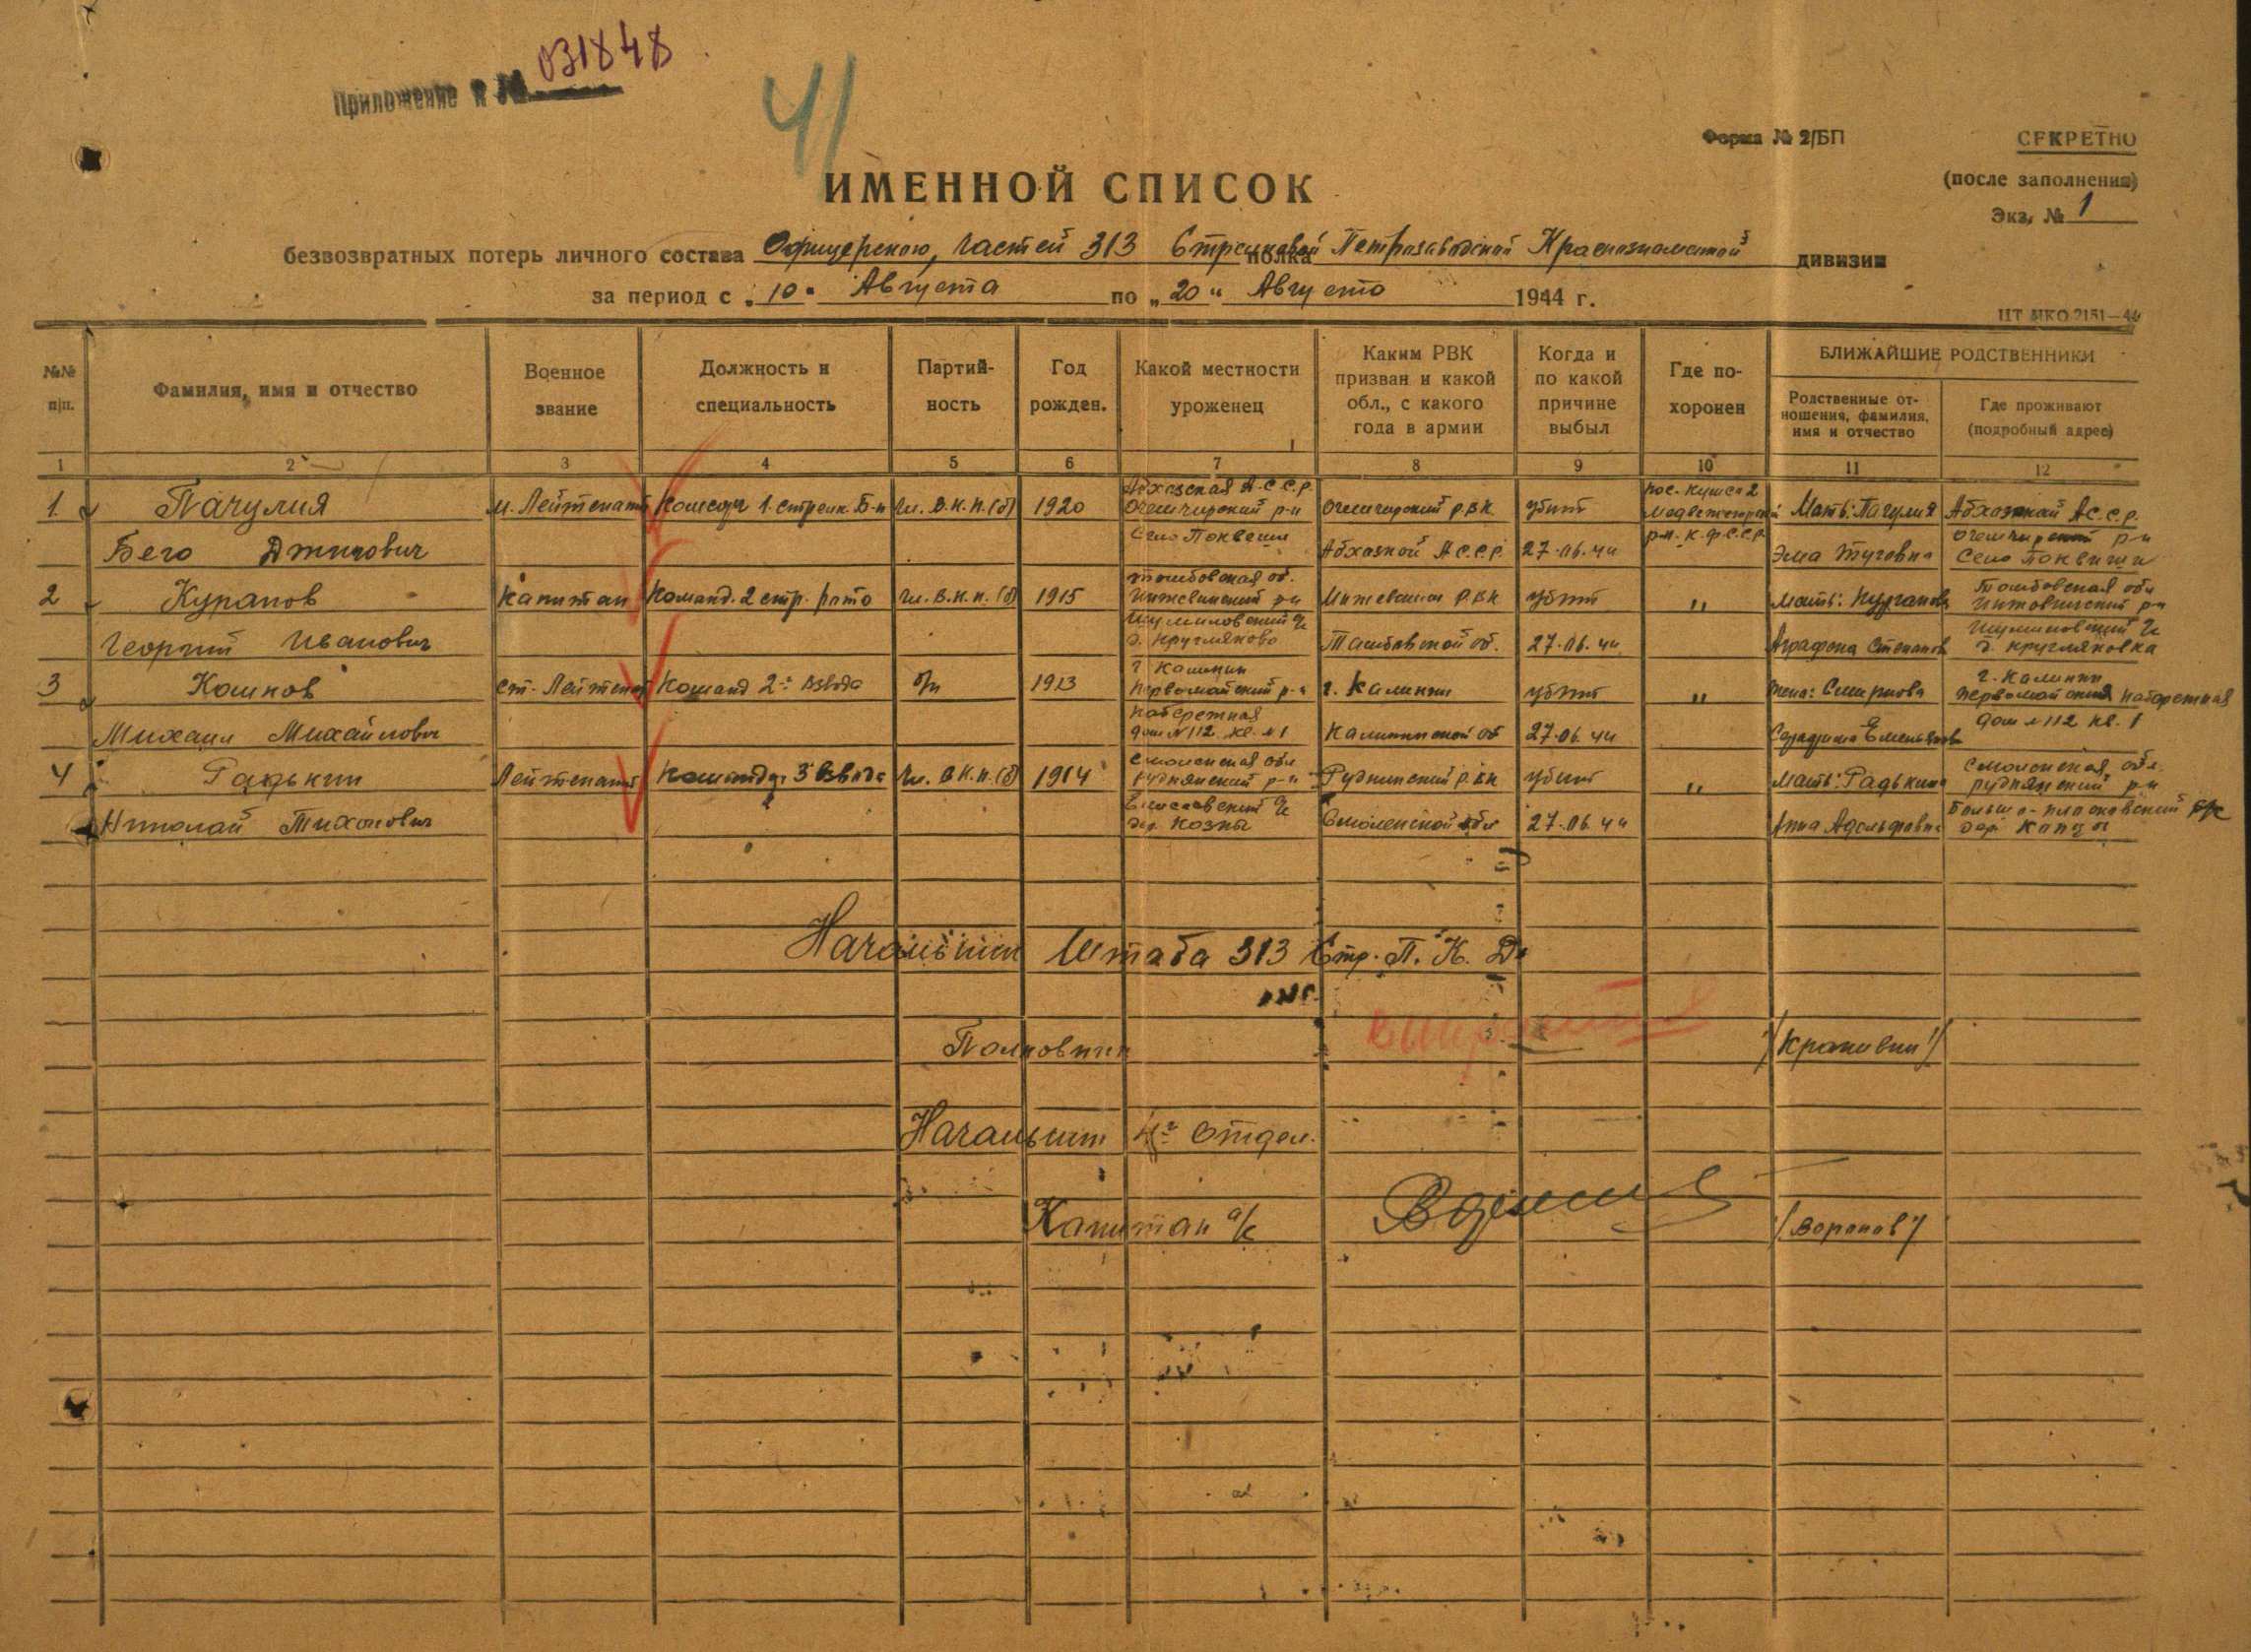 Приложение к № 031848
41
Форма № 2/БП
СЕКРЕТНО
(после заполнения)
Экз. № 1
ИМЕННОЙ СПИСОК
безвозвратных потерь личного состава Офицерского, частей 313 Стрелковой полка Петрозаводской Краснознаменной дивизии
за период с „10“ Августа по „20“ Августа 1944 г.
ЦТ НКО 2151—44
№№ п/п.
Фамилия, имя и отчество
Военное звание
Должность и специальность
Партий- ность
Год рожден.
Какой местности уроженец
Каким РВК призван и какой обл., с какого года в армии
Когда и по какой причине выбыл
Где по- хоронен
БЛИЖАЙШИЕ РОДСТВЕННИКИ
Родственные от- ношения, фамилия, имя и отчество
Где проживают (подробный адрес)
1 2 3 4 5 6 7 8 9 10 11 12
1. Пачулия м. Лейтенант 1. стрелк. Б-н чл. В.К.П.(б) 1920 Абхазская А.С.С.Р. Очемчирский р-н Село Поквеши Очемчирский РВК убит Мать: Пачулия Абхазской А.С.С.Р.
Очемчирский р-н
Абхазкой А.С.С.Р. 27.06.44 р-н. К.Ф.С.С.Р. Эма Туговна Село Поквиши
2 Капитан Команд. 2 стр. роты чл. В.К.П.(б) 1915 Тамбовская об. р-н РВК убит " Мать: Тамбовская обл
Георгий Иванович д. Кругляково Тамбовской об. 27.06.44 Аграфена Степанов д. Кругляковка
3 Кошков ст. Лейтенант Команд 2го взвода б/п 1913 г. Калинин Первомайский р-н г. Калинин убит " жена: Смирнова г. Калинин Первомайская набережная
Михаил Михайлович набережная дом №112 кв. №1 Калининской об 27.06.44 дом №112 кв. 1
4 Радькин Лейтенант Команд. 3 взвода чл. В.К.П.(б) 1914 Смоленская обл Руднянский р-н Руднинский РВК убит " Мать: Радькина Смоленская обл. Руднянский р-н
Николай Тихонович дер. Козлы Смоленской обл 27.06.44 Анна Адольфовна дер.
Начальник Штаба 313 Стр. П. К. Д.
Полковник /Крановин/
Начальник 4го отдел.
Капитан а/с /Воронов/